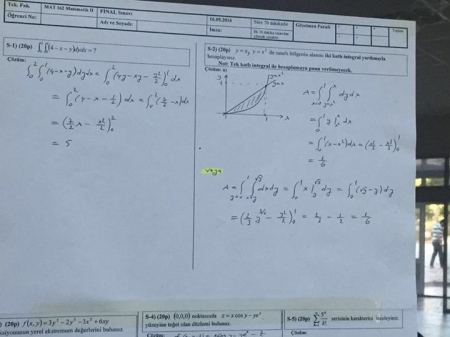 Tek. Fak.
MAT 162 Matematik II
FİNAL Sınavı
16.05.2014
Süre 70 dakikadır
Öğrenci No:
Adı ve Soyadı:
İmza:
S-1) (20p) ∫∫(4-x-y)dydx=?
Çözüm:
∫₀²∫₀¹(4-x-y)dydx = ∫₀²(4y-xy-y²/2)₀¹ dx
= ∫₀²(4-x-1/2)dx = ∫₀²(7/2-x)dx
= (7/2 x - x²/2)₀²
= 5
S-2) (20p) y=x, y=x² ile sınırlı bölgenin alanını iki katlı integral yardımıyla
hesaplayınız.
Not: Tek katlı integral ile hesaplamaya puan verilmeyecek.
Çözüm:
y
y=x²
y=x
x
A=∫₀¹∫ dydx
x=0 y=x²
=∫₀¹ y| dx
=∫₀¹(x-x²)dx=(x²/2-x³/3)₀¹
=1/6
veya
A=∫₀¹∫ dxdy = ∫₀¹ x| dy = ∫₀¹(√y-y)dy
y=0 x=y
=(2/3 y^3/2 - y²/2)₀¹ = 2/3 - 1/2 = 1/6
(20p) f(x,y)=3y²-2y³-3x²+6xy
fonksiyonunun yerel ekstremum değerlerini bulunuz.
S-4) (20p) (0,0,0) noktasında z=x cos y - yeˣ
yüzeyine teğet olan düzlemi bulunuz.
Çözüm:
S-5) (20p)
serisinin karakterini inceleyiniz.
Çözüm: